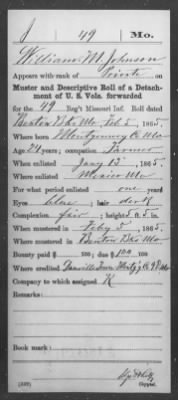 J 49 Mo.
William M Johnson
Appears with rank of Private on
Muster and Descriptive Roll of a Detach-
ment of U. S. Vols. forwarded
for the 49 Reg't Missouri Inf. Roll dated
Benton Bks Mo Feb 5, 1865.
Where born Montgomery Co Mo
Age 21 years; occupation Farmer
When enlisted Jany 13, 1865.
Where enlisted Mexico Mo
For what period enlisted one years.
Eyes blue; hair dark
Complexion fair; height 5 ft. 5 in.
When mustered in Feby 5, 1865.
Where mustered in Benton Bks Mo
Bounty paid $ 100; due $ 100 100
Where credited Danville Mo
Company to which assigned K
Remarks:
Book mark:
(339) Copyist.